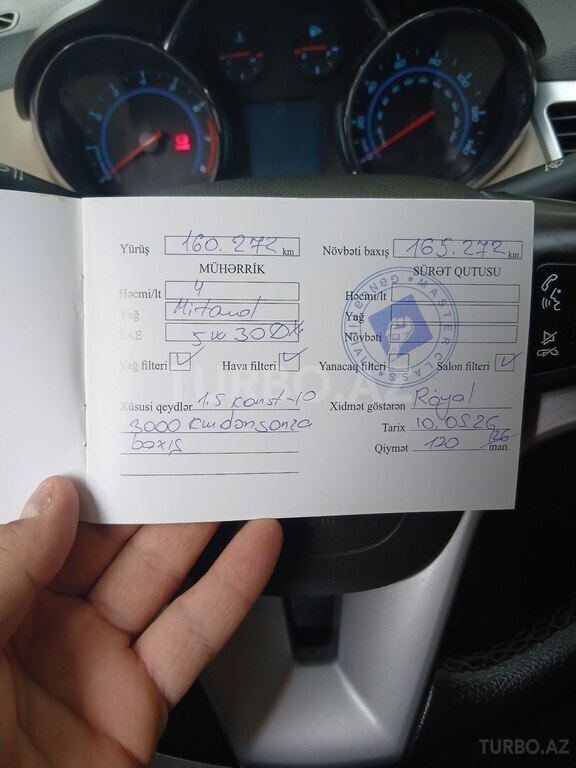 Yürüş 160.272 km
Növbəti baxış 165.272 km
MÜHƏRRİK
SÜRƏT QUTUSU
Həcmi/lt 4
Həcmi/lt
Yağ
Yağ
SAE 5w30
Növbəti
Yağ filteri
Hava filteri
Yanacaq filteri
Salon filteri
TURBO.AZ
MASTER CLASS
Xüsusi qeydlər 1.5
Xidmət göstərən Röyal
3000
Tarix 10.05.26
baxış
Qiymət 120 man.
TURBO.AZ